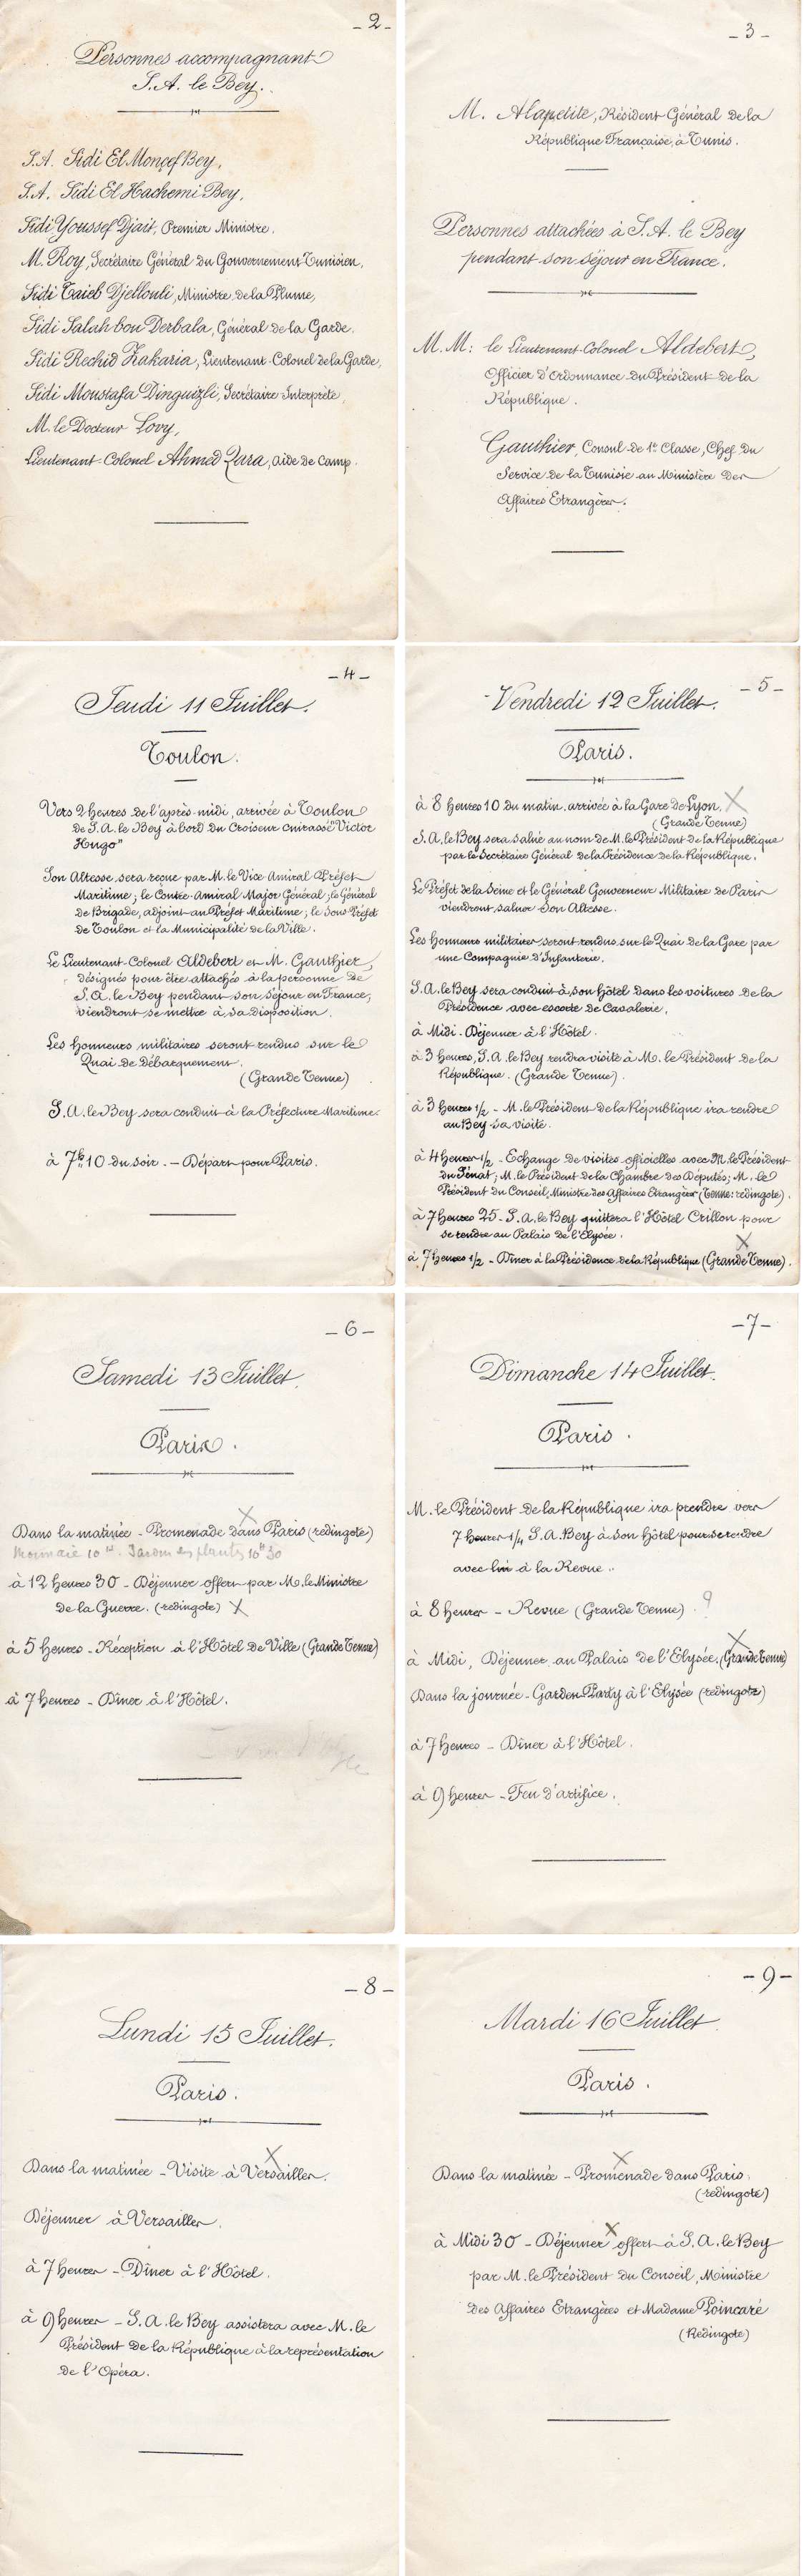 - 2 -
Personnes accompagnant
S. A. le Bey.
S.A. Sidi El Monçef Bey,
S.A. Sidi El Hachemi Bey,
Sidi Youssef Djaït, Premier Ministre,
M. Roy, Secrétaire Général du Gouvernement Tunisien,
Sidi Taïeb Djellouli, Ministre de la Plume,
Sidi Salah bou Derbala, Général de la Garde.
Sidi Rechid Zakaria, Lieutenant-Colonel de la Garde,
Sidi Moustafa Dinguizli, Secrétaire Interprète,
M. le Docteur Lovy,
Lieutenant-Colonel Ahmed Zara, aide de Camp.
- 3 -
M. Alapetite, Résident Général de la
République Française, à Tunis.
Personnes attachées à S. A. le Bey
pendant son séjour en France.
M.M: le Lieutenant-Colonel Aldebert,
Officier d'Ordonnance du Président de la
République.
Gauthier, Consul de 1re Classe, Chef du
Service de la Tunisie au Ministère des
Affaires Etrangères.
- 4 -
Jeudi 11 Juillet.
Toulon.
Vers 2 heures de l'après-midi, arrivée à Toulon
de S.A. le Bey à bord du Croiseur cuirassé "Victor
Hugo"
Son Altesse sera reçue par M. le Vice Amiral Préfet
Maritime; le Contre-Amiral Major Général; le Général
de Brigade, adjoint au Préfet Maritime; le Sous-Préfet
de Toulon et la Municipalité de la Ville.
Le Lieutenant-Colonel Aldebert et M. Gauthier,
désignés pour être attachés à la personne de
S. A. le Bey pendant son séjour en France,
viendront se mettre à sa disposition.
Les honneurs militaires seront rendus sur le
Quai de débarquement.
(Grande Tenue)
S. A. le Bey sera conduit à la Préfecture Maritime.
à 7h 10 du soir. - Départ pour Paris.
- 5 -
Vendredi 12 Juillet.
Paris.
à 8 heures 10 du matin, arrivée à la Gare de Lyon. X
(Grande Tenue)
S. A. le Bey sera salué au nom de M. le Président de la République
par le Secrétaire Général de la Présidence de la République.
Le Préfet de la Seine et le Général Gouverneur Militaire de Paris
viendront saluer Son Altesse.
Les honneurs militaires seront rendus sur le Quai de la Gare par
une Compagnie d'Infanterie.
S. A. le Bey sera conduit à son hôtel dans les voitures de la
Présidence avec escorte de Cavalerie.
à Midi - Déjeuner à l'Hôtel.
à 3 heures, S. A. le Bey rendra visite à M. le Président de la
République. (Grande Tenue).
à 3 heures 1/2 - M. le Président de la République ira rendre
au Bey sa visite.
à 4 heures 1/2 - Echange de visites officielles avec M. le Président
du Sénat; M. le Président de la Chambre des Députés; M. le
Président du Conseil, Ministre des Affaires Etrangères (Tenue: redingote).
à 7 heures 25 - S. A. le Bey quittera l'Hôtel Crillon pour
se rendre au Palais de l'Elysée.
X
à 7 heures 1/2 - Dîner à la Présidence de la République (Grande Tenue).
- 6 -
Samedi 13 Juillet.
Paris.
X
Dans la matinée - Promenade dans Paris (redingote)
Monnaie 10h. Jardin des plantes 10h30
à 12 heures 30 - Déjeuner offert par M. le Ministre
de la Guerre. (redingote) X
à 5 heures - Réception à l'Hôtel de Ville (Grande Tenue)
à 7 heures - Dîner à l'Hôtel.
- 7 -
Dimanche 14 Juillet.
Paris.
M. le Président de la République ira prendre vers
7 heures 1/4 S. A. Bey à son hôtel pour se rendre
avec lui à la Revue.
à 8 heures - Revue (Grande Tenue). ?
X
à Midi, Déjeuner au Palais de l'Elysée. (Grande Tenue)
Dans la journée - Garden-Party à l'Elysée (redingote)
à 7 heures - Dîner à l'Hôtel.
à 9 heures - Feu d'artifice.
- 8 -
Lundi 15 Juillet.
Paris.
X
Dans la matinée - Visite à Versailles.
Déjeuner à Versailles.
à 7 heures - Dîner à l'Hôtel.
à 9 heures - S. A. le Bey assistera avec M. le
Président de la République à la représentation
de l'Opéra.
- 9 -
Mardi 16 Juillet
Paris.
X
Dans la matinée - Promenade dans Paris.
(redingote)
X
à Midi 30 - Déjeuner offert à S. A. le Bey
par M. le Président du Conseil, Ministre
des Affaires Etrangères et Madame Poincaré
(Redingote)